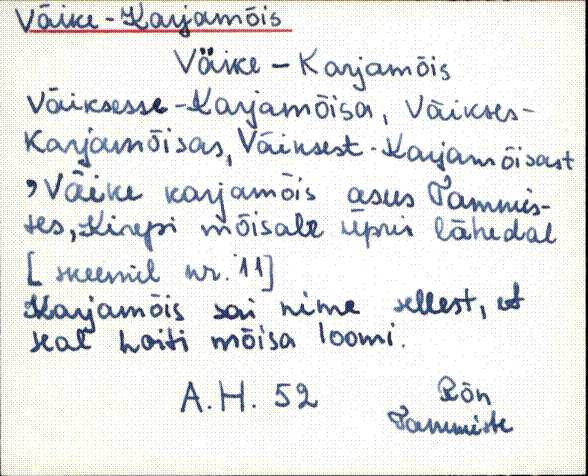 Väike-Karjamõis
Väike - Karjamõis
Väiksesse-Karjamõisa, Väikses-
Karjamõisas, Väiksest-Karjamõisast
, Väike karjamõis asus Tammis-
tes, Kirepi mõisale üpris lähedal
[skeemil nr. 11]
Karjamõis sai nime sellest, et
seal hoiti mõisa loomi.
A.H. 52 Rõn
Tammiste